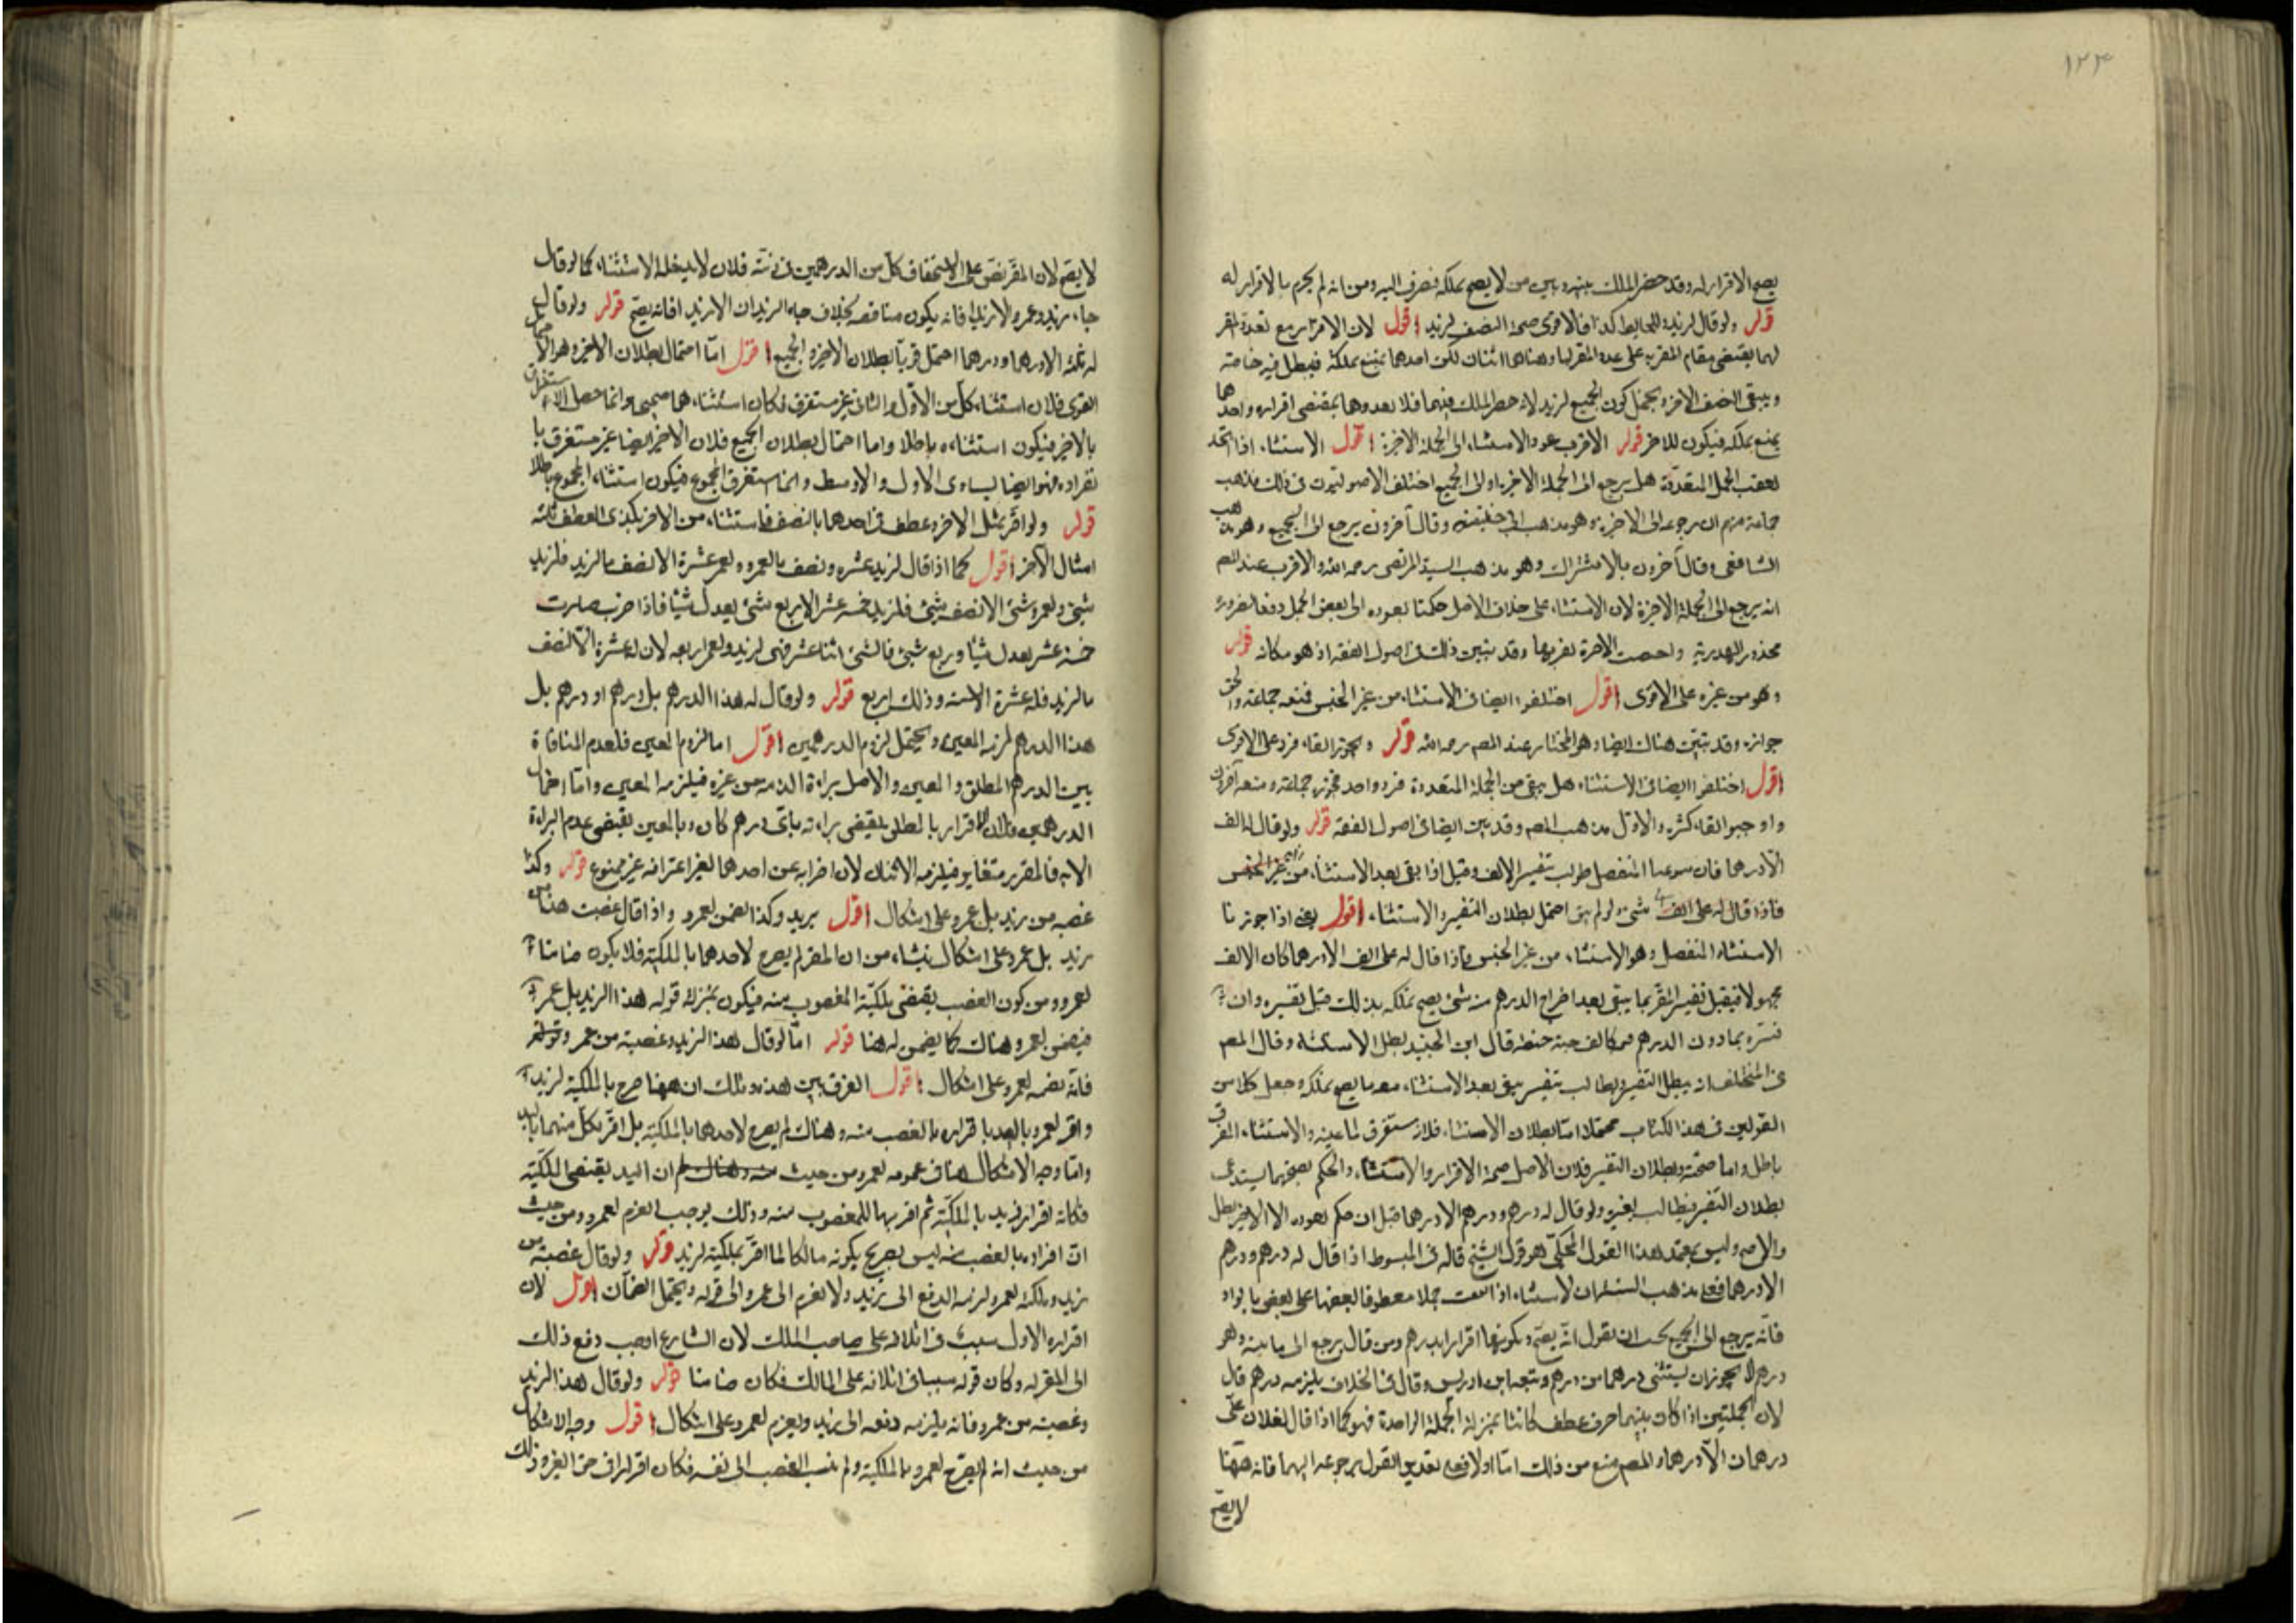 ١٢٣
يصح الاقرار له وقد حصر الملك بينه وبين من لا يصح تملكه فصرف اليه ومن انه لم يجزم بالاقرار له
قوله ولو قال لزيد والحايط كذا فالاقوى صحة النصف لزيد اقول لان الاقرار مع تعدد المقر
لهما يقتضى مقام المقر به على عدد المقر لهما وهنا هما اثنان لكن احدهما يمتنع تملكه فيبطل فيه خاصة
ويبقى النصف الاخر ويحتمل كون الجميع لزيد لانه حصر الملك فيهما فلا يعدوهما بمقتضى اقراره واحدهما
يمتنع تملكه فيكون للاخر قوله الاقرب عود الاستثناء الى الجملة الاخيرة اقول الاستثناء اذا اتحد
تعقب الجمل المتعددة هل يرجع الى الجملة الاخيرة او الى الجميع اختلف الاصوليون فى ذلك فذهب
جماعة منهم ان يرجع الى الاخيرة وهو مذهب ابى حنيفة وقال آخرون يرجع الى الجميع وهو مذهب
الشافعى وقال آخرون بالاشتراك وهو مذهب السيد المرتضى رحمه الله والاقرب عند المص
انه يرجع الى الجملة الاخيرة لان الاستثناء على خلاف الاصل حكمنا بعوده الى بعض الجمل دفعا لضرورة
محذور الهذرية واختصت الاخيرة لقربها وقد تبين ذلك فى اصول الفقه اذ هو مكانه قوله
وهو من غيره على الاقوى اقول اختلفوا ايضا فى الاستثناء من غير الجنس فمنعه جماعة والحق
جوازه وقد تبين هناك ايضا وهو المختار عند المص رحمه الله قوله ويجوز القاء فرد على الاقوى
اقول اختلفوا ايضا فى الاستثناء هل يبقى من الجملة المتعددة فرد واحد فجوزه جماعة ومنعه آخرون
واوجبوا القاء كثرة والاول مذهب المص وقد بين ايضا فى اصول الفقه قوله ولو قال له الف
الا درهما فان سوغنا المنفصل طولب بتفسير الالف وقيل اذا بقى بعد الاستثناء من غير الجنس
فاذا قال له على الف شئ ولو لم يبق احتمل بطلان التفسير والاستثناء اقول يعنى اذا جوزنا
الاستثناء المنفصل وهو الاستثناء من غير الجنس فاذا قال له على الف الا درهما كان الالف
مجهولا فيقبل تفسير المقر بما يبقى بعد اخراج الدرهم منه شئ يصح تملكه بذلك قبل تفسيره وان
فسره بما دون الدرهم كالف حبة حنطة قال ابن الجنيد بطل الاستثناء وقال المص
فى المختلف انه يبطل التفسير ويطالب بتفسير يبقى بعد الاستثناء معه ما يصح تملكه وجعل كلا من
القولين فى هذا الكتاب محتملا اما بطلان الاستثناء فلانه مستغرق لما عينه والاستثناء المستغرق
باطل واما صحته وبطلان التفسير فلان الاصل صحة الاقرار والاستثناء والحكم بصحتهما يستدعى
بطلان التفسير فيطالب بغيره ولو قال له درهم ودرهم الا درهما قيل ان حكم بعوده الى الاخير بطل
والا صح وليس بمعتمد هذا القول المحكى هو قول الشيخ قاله فى المبسوط اذا قال له درهم ودرهم
الا درهما فعلى مذهب ان الاستثناء اذا تعقب جملا معطوفا بعضها على بعض بالواو
فانه يرجع الى الجميع يجب ان نقول انه يصح ويكون هذا اقرارا بدرهم ومن قال يرجع الى ما يليه وهو
درهم لا يجوز ان يستثنى درهما من درهم وتبعه ابن ادريس وقال فى الخلاف يلزمه درهم قال
لان الجملتين اذا كان بينهما حرف عطف كانتا بمنزلة الجملة الواحدة فهو كما اذا قال لفلان على
درهمان الا درهما والمص منع من ذلك اما اولا فعلى تقدير القول برجوعه اليهما فانه ههنا
لا يصح
لا يصح لان المقر نص على الاستحقاق كل من الدرهمين فى ذمته فلان لا يدخله الاستثناء كما لو قال
جاء زيد وعمرو الا زيدا فانه يكون مناقضه بخلاف جاء الزيدان الا زيدا فانه يصح قوله ولو قال
له ثلثة الا درهما ودرهما احتمل قويا بطلان الاخير والجميع اقول اما احتمال بطلان الاخير وهو
القوى فلان استثناء كل من الاول والثانى غير مستغرق فكان استثناءهما صحيحا وانما حصل الاستغراق
بالاخير فيكون استثناءه باطلا واما احتمال بطلان الجميع فلان الاخير ايضا غير مستغرق با
نفراده فهو ايضا يساوى الاول والاوسط وانما استغرق المجموع فيكون استثناء المجموع باطلا
قوله ولو اقر بمثل الاخر وعطف فى احدهما بالنصف فاستثناه من الاخر فلذى العطف ثلثة
امثال الآخر اقول كما اذا قال لزيد عشرة ونصف ما لعمرو ولعمرو عشرة الا نصف ما لزيد فلزيد
شئ ولعمرو عشرة الا نصف شئ فلزيد خمسة عشر الا ربع شئ يعدل شيئا فاذا جبرت صارت
خمسة عشر يعدل شيئا وربع شئ فالشئ اثنا عشر فهى لزيد ولعمرو اربعه لان له عشرة الا نصف
ما لزيد فله عشرة الا سته وذلك اربع قوله ولو قال له هذا الدرهم بل درهم او درهم بل
هذا الدرهم لزمه المعين ويحتمل لزوم الدرهمين اقول اما لزوم المعين فلعدم المنافاة
بين الدرهم المطلق والمعين والاصل براءة الذمه من غيره فيلزمه المعين واما احتمال
الدرهمين فلان الاقرار بالمطلق يقتضى براءته باى درهم كان وبالمعين يقتضى عدم البراءة
الا به فالمقر به متغاير فيلزمه الاثنان لان اضرابه عن احدهما لغير اعترافه غير مسموع قوله وكذا
غصبه من زيد بل عمرو على اشكال اقول يريد وكذا يضمن لعمرو واذا قال غصبت هذا من
زيد بل عمرو على اشكال ينشاء من ان المقر لم يصرح لاحدهما بالملكية فلا يكون ضامنا
لعمرو ومن كون الغصب يقتضى ملكية المغصوب منه فيكون بمنزلة قوله هذا لزيد بل عمرو
فيضمن لعمرو وهناك كما يضمن له هنا قوله اما لو قال هذا لزيد وغصبته من عمرو
فانه يضمنه لعمرو على اشكال اقول الفرق بين هذه وتلك ان ههنا صرح بالملكية لزيد
واقر لعمرو باليد باقراره بالغصب منه وهناك لم يصرح لاحدهما بالملكية بل اقر لكل منهما باليد
واما وجه الاشكال هنا فى غرمه لعمرو من حيث ان اليد يقتضى الملكية
فكانه اقر لزيد بالملكية ثم اقر بها للمغصوب منه وذلك يوجب الغرم لعمرو ومن حيث
ان اقراره بالغصب منه ليس بصريح بكونه مالكا لما اقر بملكيته لزيد قوله ولو قال غصبته من
زيد وملكه لعمرو لزمه الدفع الى زيد ولا يغرم الى عمرو الى قوله ويحتمل الضمان اقول لان
اقراره الاول سبب فى اتلافه على صاحب الملك لان الشارع اوجب دفع ذلك
الى المقر له وكان قوله سببا فى اتلافه على المالك فكان ضامنا قوله ولو قال هذا لزيد
وغصبته من عمرو فانه يلزمه دفعه الى زيد ويغرم لعمرو على اشكال اقول وجه الاشكال
من حيث انه لم يصرح لعمرو بالملكية ولم ينسب الغصب الى نفسه فكان اقرارا فى حق الغير وذلك